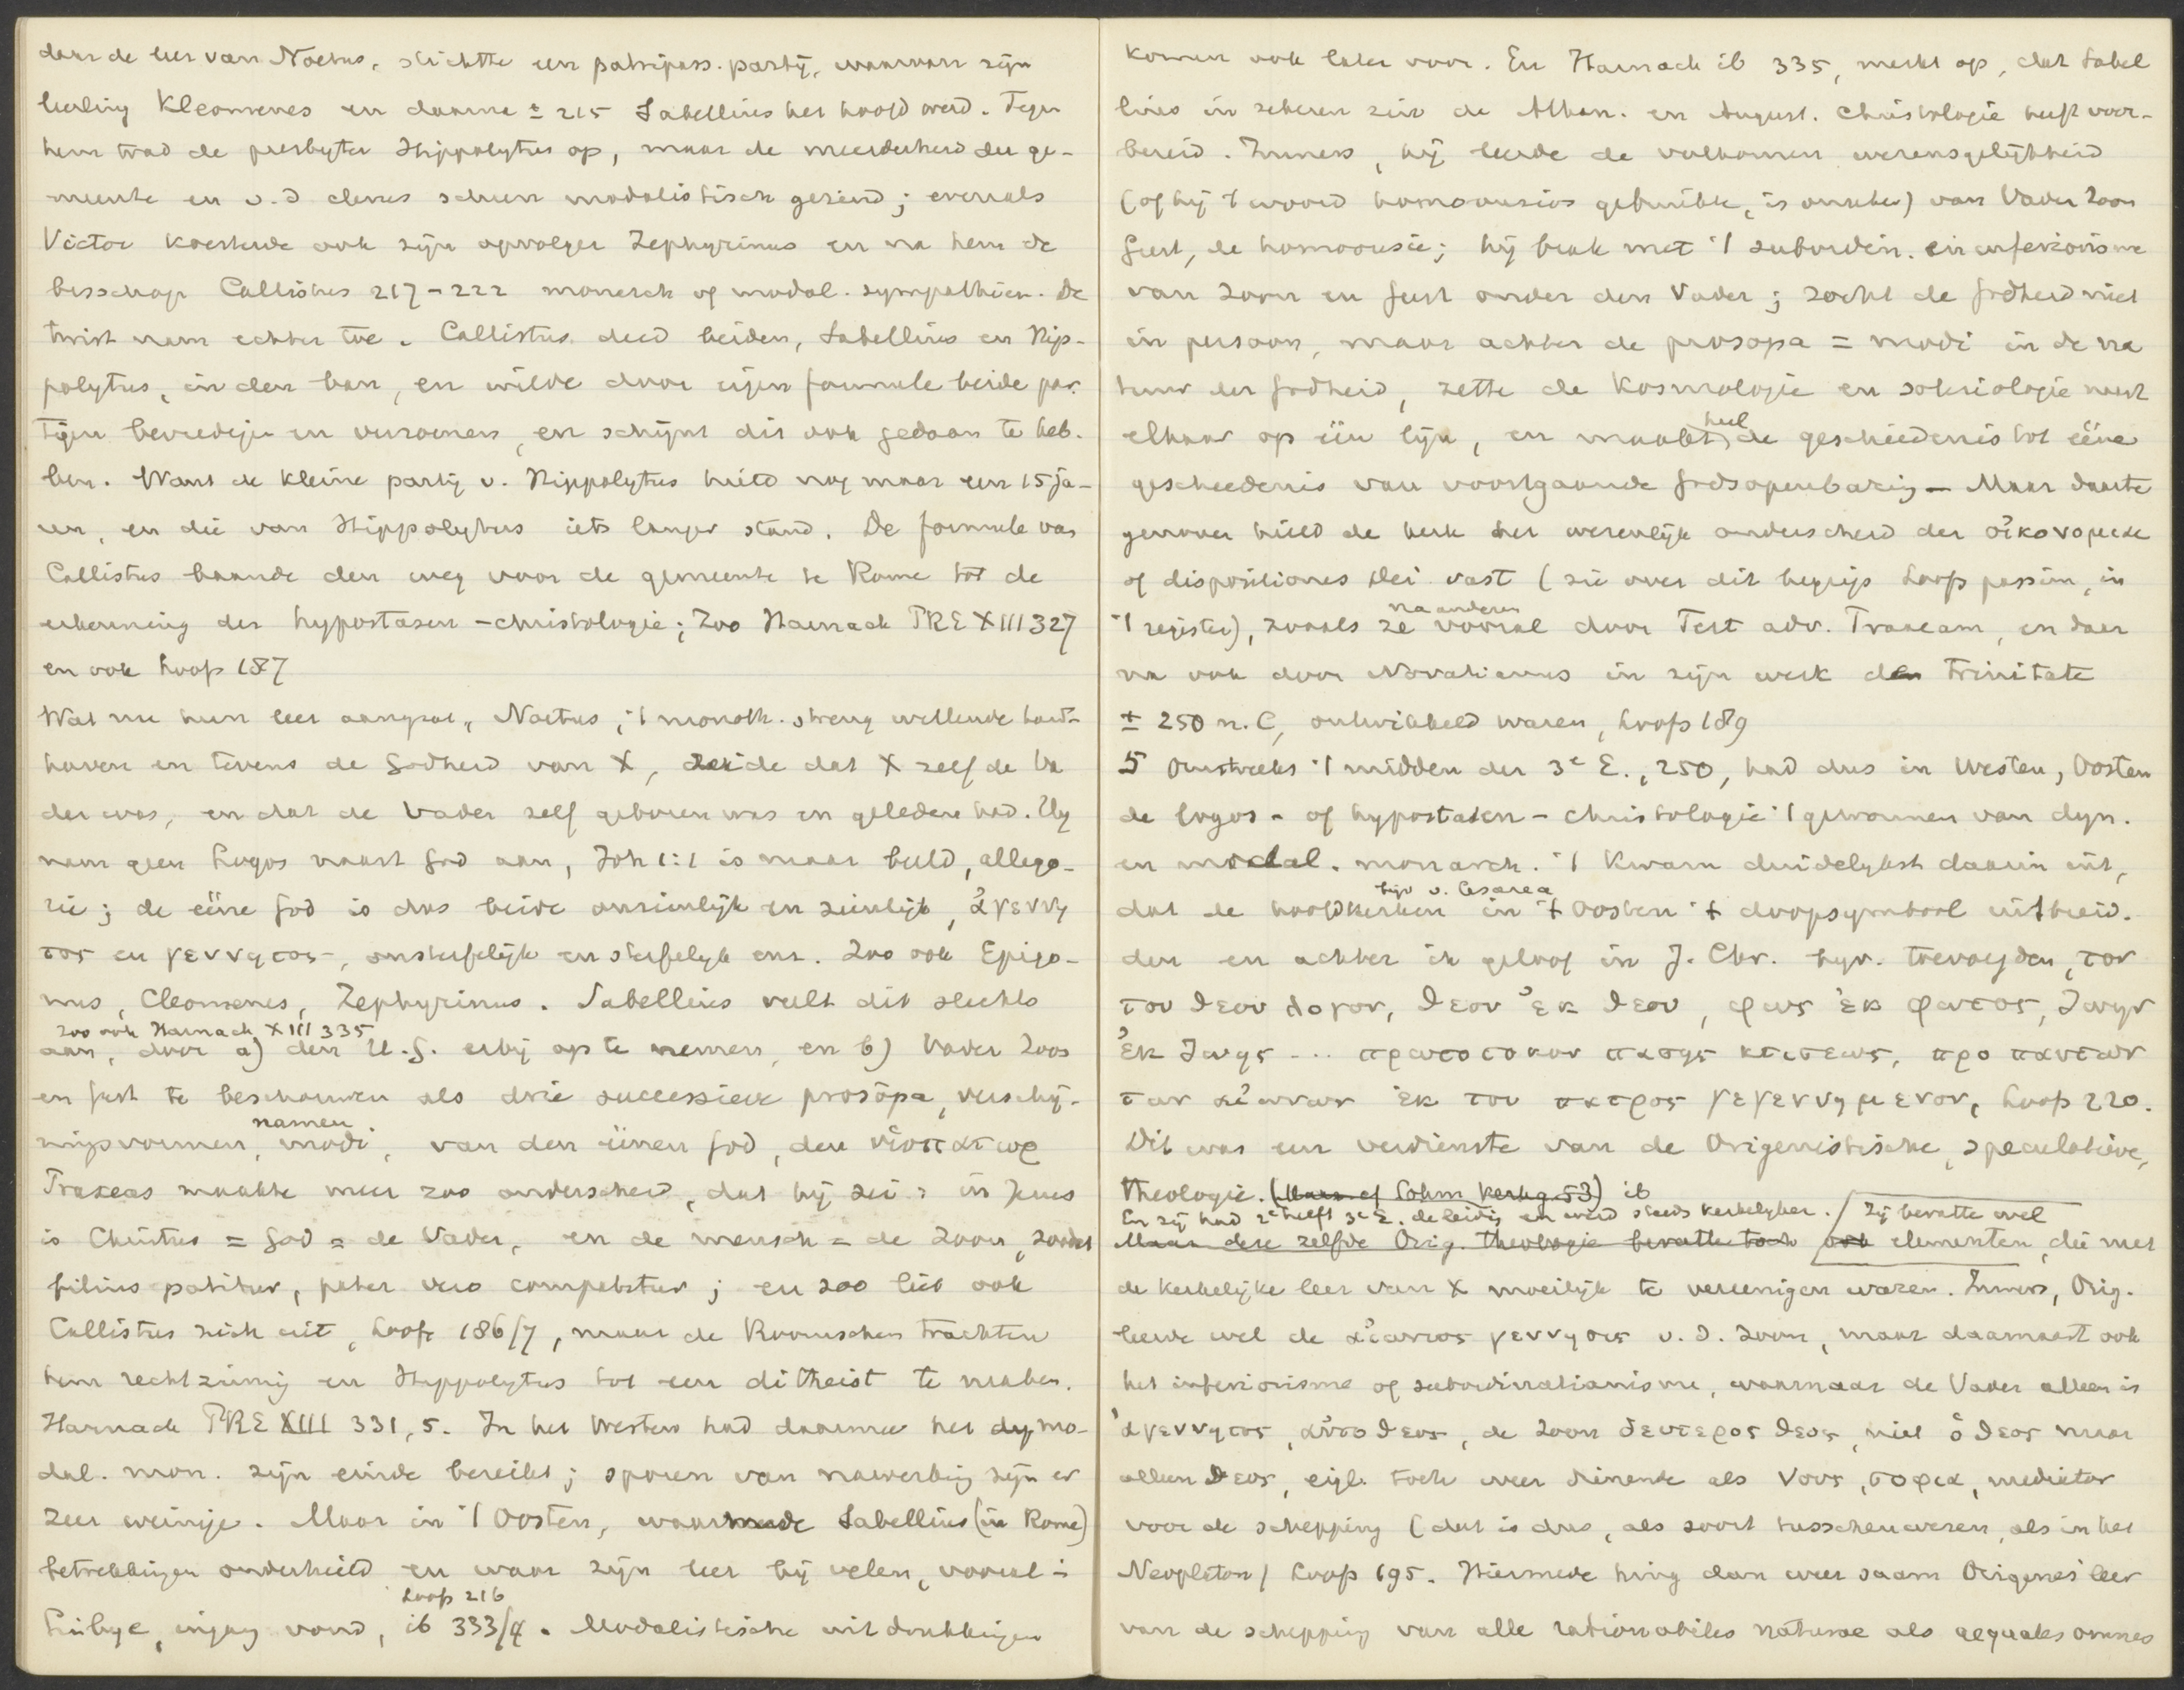 door de leer van Noetus, stichtte een patripass. partij, waarvan zijn
leerling Kleomenes en daarna ± 215 Sabellius het hoofd werd. Tegen
hem trad de presbyter Hippolytus op, maar de meerderheid der ge-
meente en v. d clerus scheen modalistisch gezind; evenals
Victor koesterde ook zijn opvolger Zephyrinus en na hem de
bisschop Callistus 217-222 monarch of modal. sympathieen. De
twist nam echter toe. Callistus deed beiden, Sabellius en Hip-
polytus, in den ban, en wilde door eigen formule beide par-
tijen bevredigen en verzoenen, en schijnt dit ook gedaan te heb-
ben. Want de kleine partij v. Hippolytus hield nog maar een 15 ja-
ren, en die van Hippolytus iets langer stand. De formule van
Callistus baande den weg voor de gemeente te Rome tot de
erkenning der hypostasen-christologie; Zoo Harnack PRE XIII 327
en ook Loofs 187
Wat nu hun leer aangaat, Noetus, 't monoth. streng willende hand-
haven en tevens de Godheid van X, zeide dat X zelf de Va
der was, en dat de Vader zelf geboren was en geleden had. Hij
nam geen Logos naast God aan, Joh 1:1 is maar beeld, allego-
rie; de eene God is dus beide onzienlijk en zienlijk, ἀγεννη
τος en γεννητος, onsterfelijk en sterfelijk enz. Zoo ook Epigo-
nus, Cleomenes, Zephyrinus. Sabellius vult dit slechts
zoo ook Harnack XIII 335
aan, door a) den H. G. erbij op te nemen, en b) Vader Zoon
en Geest te beschouwen als drie successieve prosōpa, verschij-
namen
ningsvormen, modi, van den eenen God, den υἱοπατωρ
Praxeas maakte meer zoo onderscheid, dat hij zei: in Jezus
is Christus = God = de Vader, en de mensch = de Zoon, zoodat
filius patitur, pater vero compatitur; en zoo liet ook
Callistus zich uit, Loofs 186/7, maar de Roomschen trachten
hem rechtzinnig en Hippolytus tot een ditheist te maken.
Harnack PRE XIII 331, 5. In het Westen had daarmee het dy mo-
dal. mon. zijn einde bereikt; sporen van nawerking zijn er
zeer weinige. Maar in 't Oosten, waarmede Sabellius (in Rome)
betrekkingen onderhield en waar zijn leer bij velen, vooral i
Loofs 216
Libye, ingang vond, ib 333/4. Modalistische uitdrukkingen
komen ook later voor. En Harnack ib 335, merkt op, dat Sabel
lius in zekeren zin de Athan. en August. Christologie heeft voor-
bereid. Immers, hij leerde de volkomen wezensgelijkheid
(of hij 't woord homoousios gebruikte, is onzeker) van Vader Zoon
Geest, de homoousie; hij brak met 't subordin. en inferiorisme
van Zoon en Geest onder den Vader; zocht de Godheid niet
in persoon, maar achter de prosopa = modi in de na
tuur der Godheid, zette de kosmologie en soteriologie naast
heel
elkaar op één lijn, en maakte de geschiedenis tot ééne
geschiedenis van voortgaande Godsopenbaring — Maar daarte
genover hield de kerk het wezenlijk onderscheid der οἰκονομιαι
of dispositiones Dei vast (zie over dit begrip Loofs passim, in
na anderen
't register), zooals ze vooral door Tert adv. Praxeam, en daar
na ook door Novatianus in zijn werk de Trinitate
± 250 n. C, ontwikkeld waren, Loofs 189
5 Omstreeks 't midden der 3e E., 250, had dus in Westen, Oosten
de logos- of hypostasen-christologie 't gewonnen van dyn.
en modal. monarch. 't Kwam duidelijkst daarin uit,
bijv v. Cesarea
dat de hoofdkerken in 't Oosten 't doopsymbool uitbreid-
den en achter ik geloof in J. Chr. bijv. toevoegden, τον
του θεου λογον, θεον ἐκ θεου, φως ἐκ φωτος, ζωην
ἐκ ζωης ... πρωτοτοκον πασης κτισεως, προ παντων
των αἰωνων ἐκ του πατρος γεγεννημενον, Loofs 220.
Dit was een verdienste van de Origenistische, speculatieve,
theologie. (Maar cf Sohm Kerkg. 53) ib
En zij had 2e helft 3e E. de leiding en werd steeds kerkelijker. / Zij bevatte wel
Maar deze zelfde Orig. theologie bevatte toch ook elementen, die met
de kerkelijke leer van X moeilijk te vereenigen waren. Immers, Orig.
leerde wel de αἰωνιος γεννησις v. d. Zoon, maar daarnaast ook
het inferiorisme of subordinatianisme, waarnaar de Vader alleen is
ἀγεννητος, αὐτοθεος, de Zoon δευτερος θεος, niet ὁ θεος maar
alleen θεος, eigl. toch weer dienende als νους, σοφια, mediator
voor de schepping (dat is dus, als soort tusschenwezen, als in het
Neoplaton) Loofs 195. Hiermede hing dan weer saam Origenes' leer
van de schepping van alle rationabiles naturae als aequales omnes